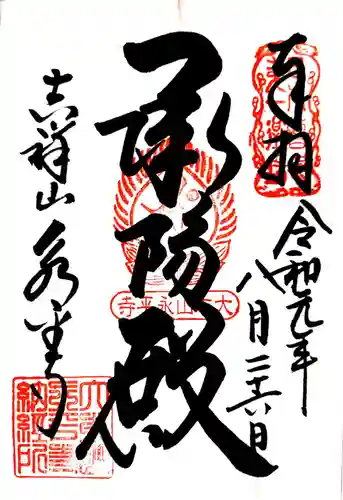 奉拝
令和元年
八月二十六日
承陽殿
大本山永平寺
吉祥山永平寺
納経所